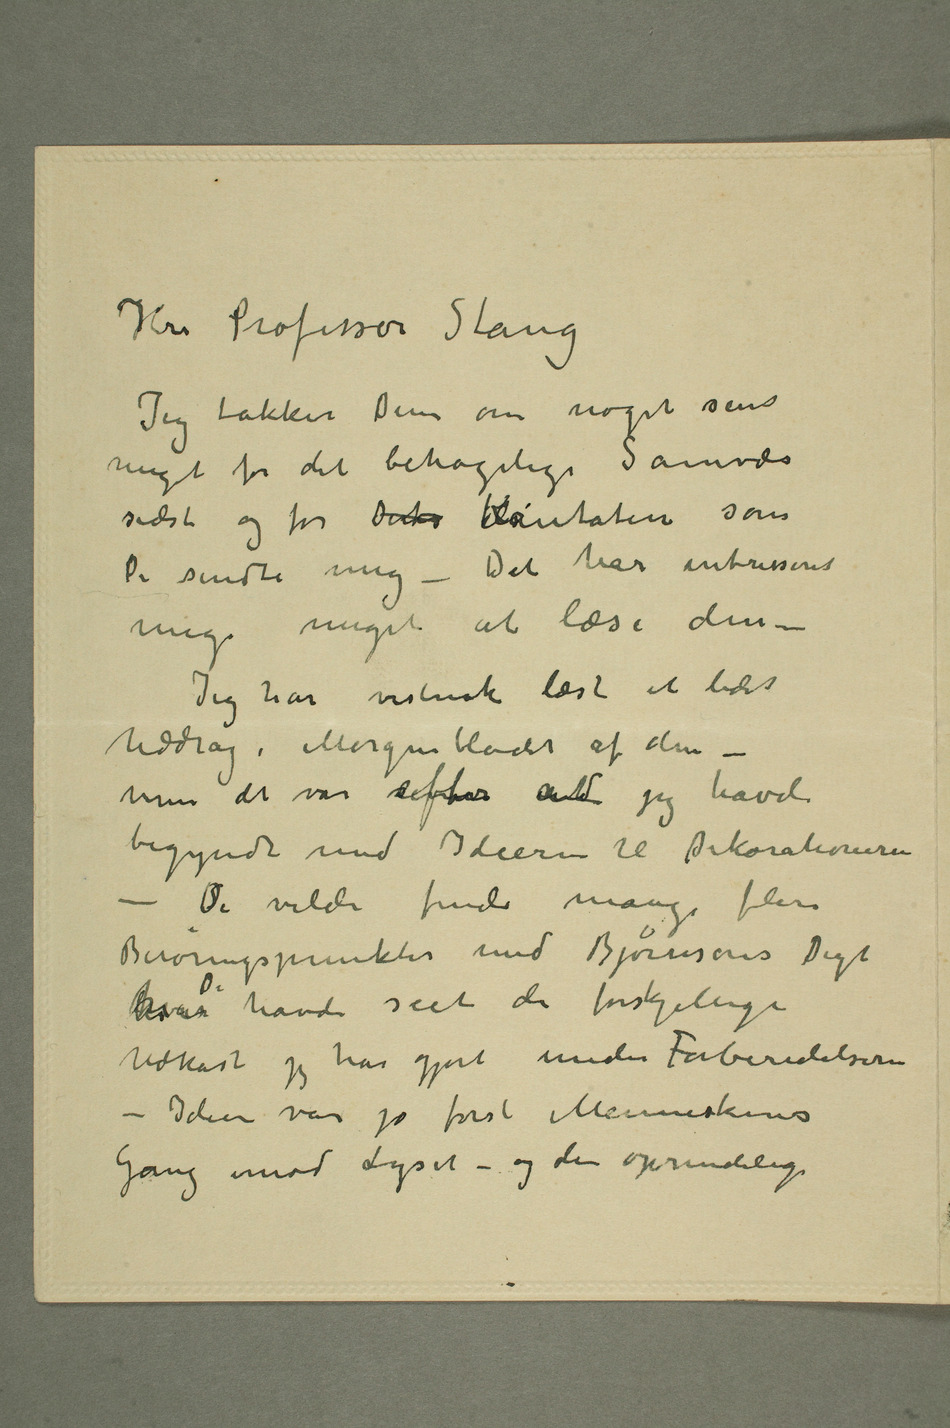 Hr Professor Stang
Jeg takker Dem om noget sent
meget for det behagelige Samvær
sidst og for Kantaten som
De sendte mig – Det har intresseret
mig meget at læse den –
Jeg har vistnok læst et lidet
Uddrag i Morgenbladet af den –
men det var efter at jeg havde
begyndt med Ideerne til Dekorationerne
– De vilde finde mange flere
Berøringspunkter med Bjørnsons Digt
hvis De havde seet de forskjellige
Udkast jeg har gjort under Forberedelserne
– Ideen var jo først Menneskenes
Gang imod Lyset – og den oprindelige